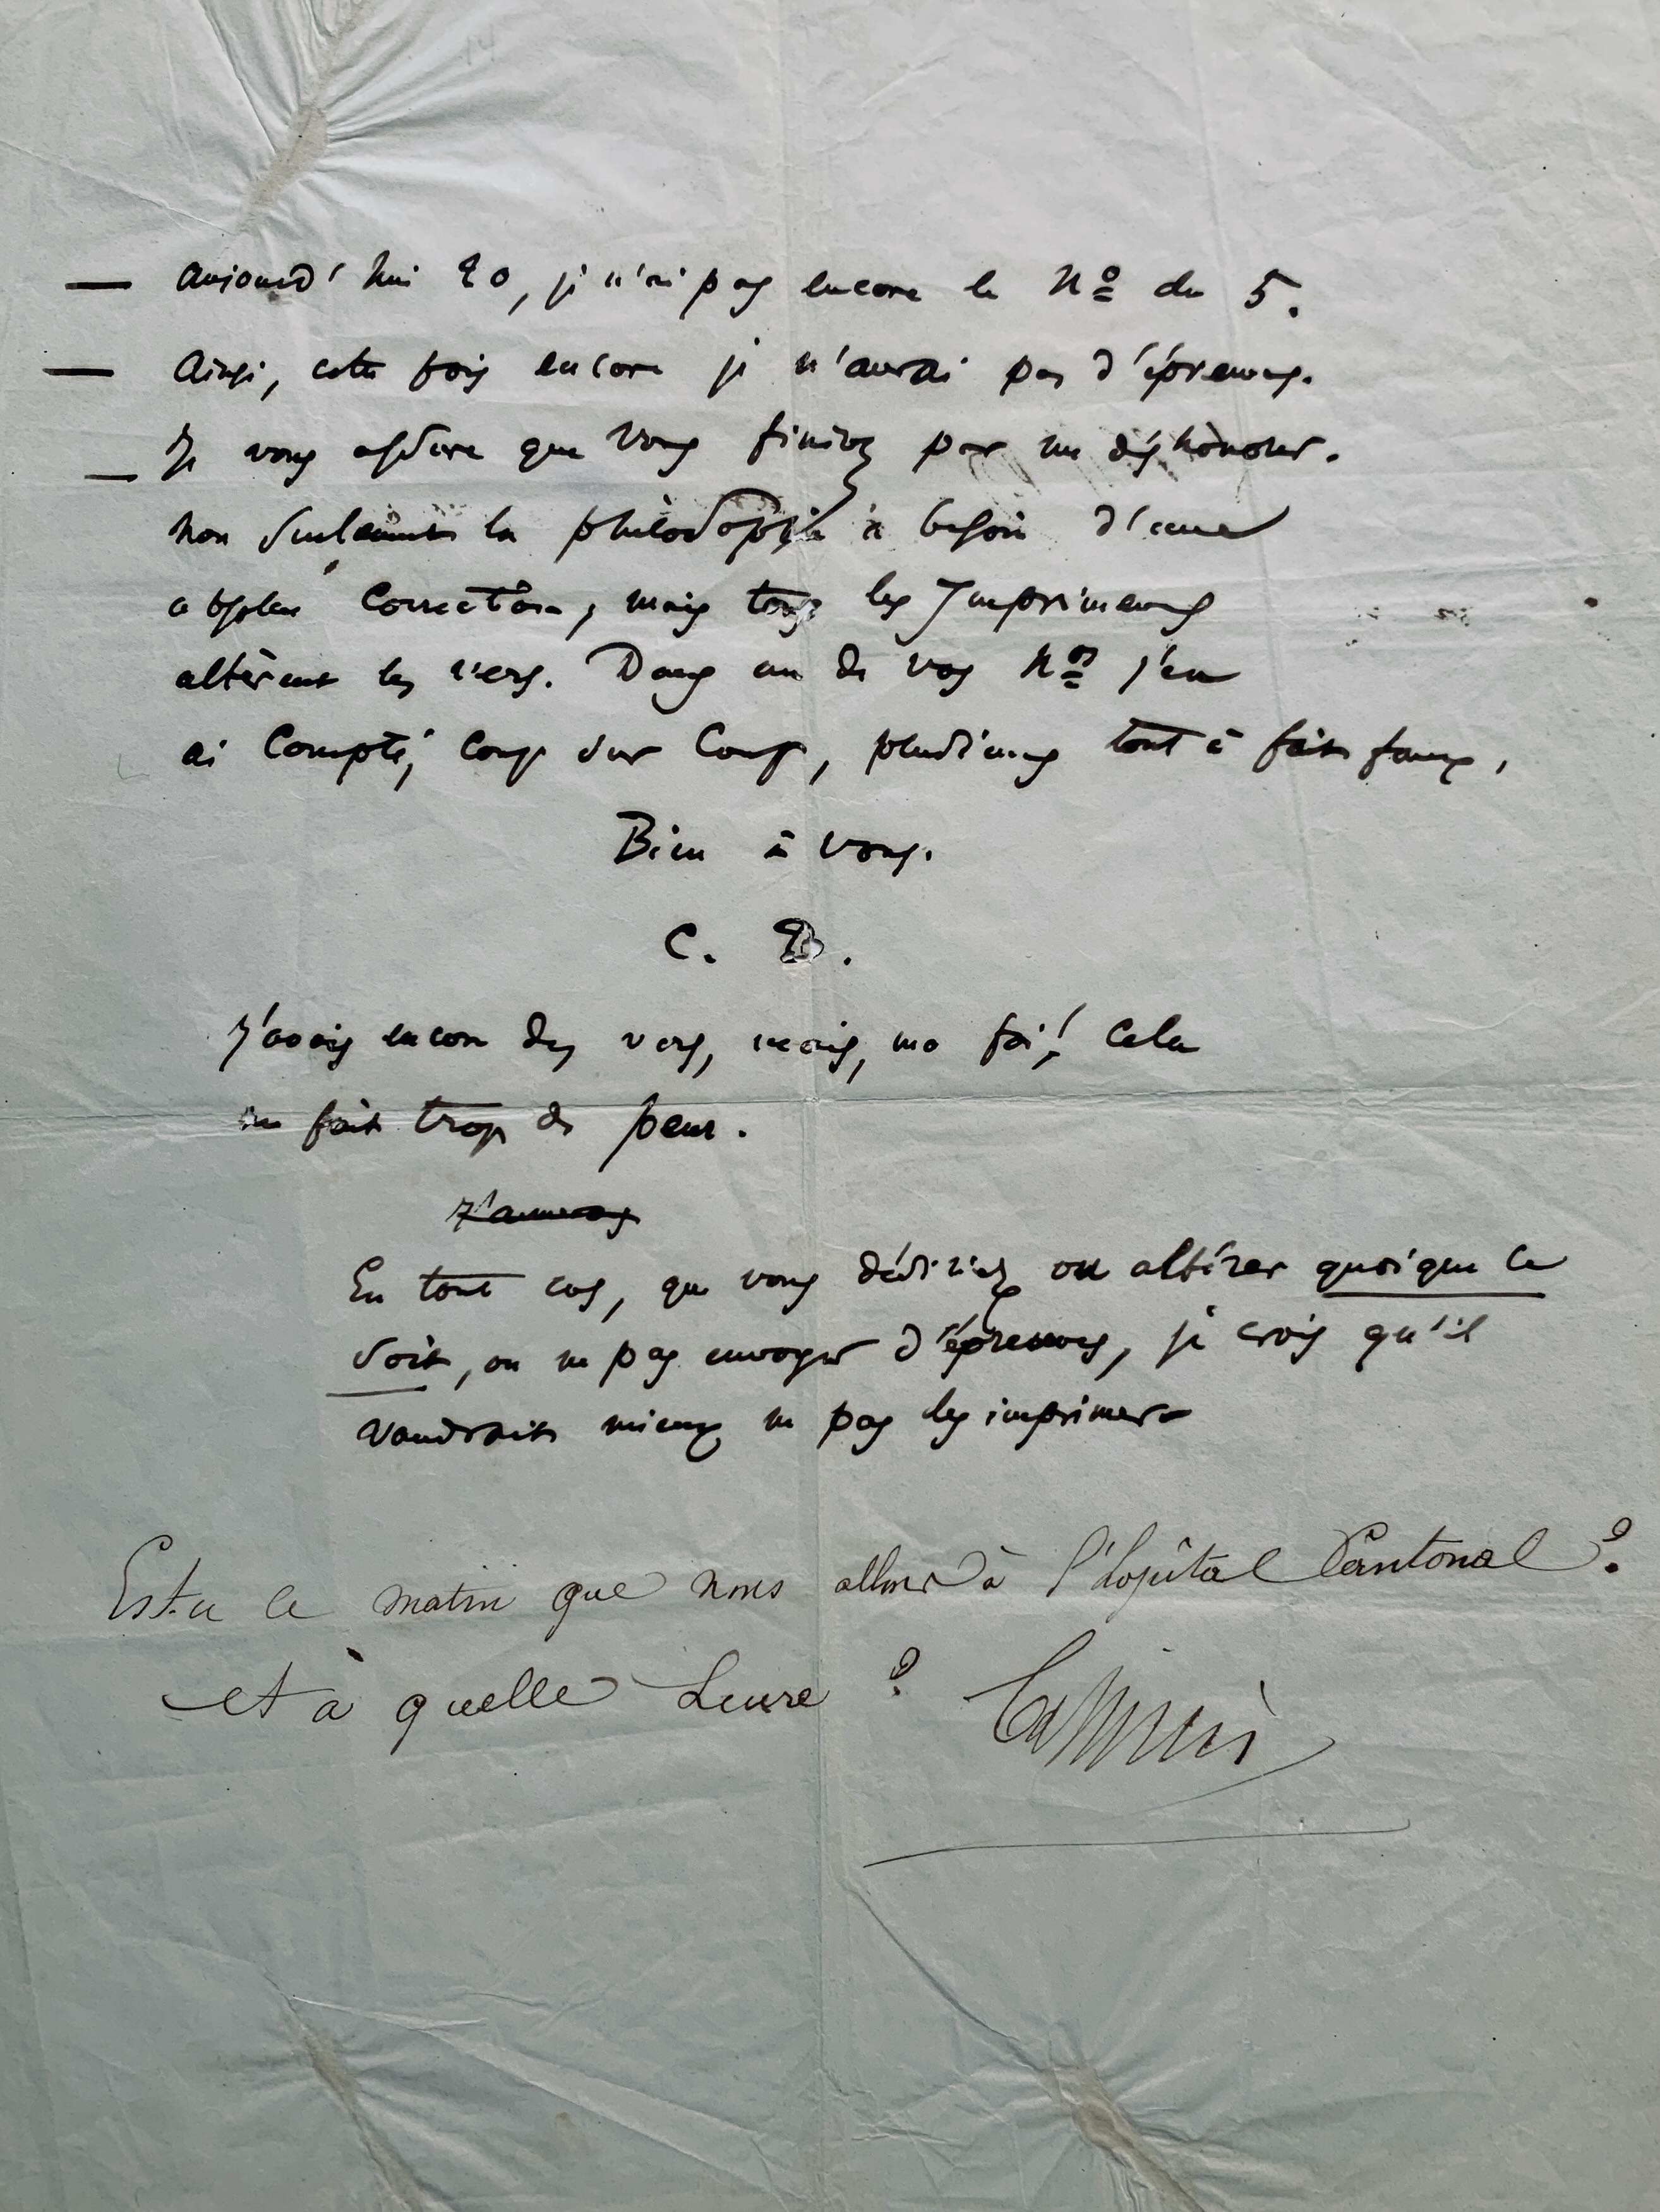 — Aujourd'hui 20, je n'ai pas encore le Nº du 5.
— Ainsi, cette fois encore je n'aurai pas d'épreuves.
— Je vous assure que vous finirez par me déshonorer.
Non seulement la philosophie a besoin d'une
absolue correction, mais tous les Imprimeurs
altèrent les vers. Dans un de vos Nos j'en
ai compté, coup sur coup, plusieurs tout à fait faux.
Bien à vous.
C. B.
J'avais encore des vers, mais, ma foi! cela
me fait trop de peur.
En tout cas, que vous désiriez ou altérer quoique ce
soit, ou ne pas envoyer d'épreuves, je crois qu'il
vaudrait mieux ne pas les imprimer.
Est-ce ce matin que nous allons à l'hôpital Cantonal?
et à quelle heure?